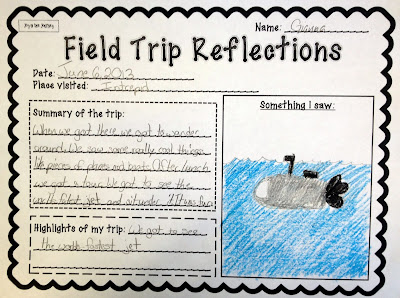 Name: Gianna
Field Trip Reflections
Date: June 6, 2013
Place Visited: Intrepid
Summary of the trip:
When we got there we got to wander
around. We saw some really cool things
like pieces of planes and boat. After lunch
we got a tour. We got to see the
worlds fastest jet and sit under it! It was fun!
Something I saw:
Highlights of my trip: We got to see
the worlds fastest jet